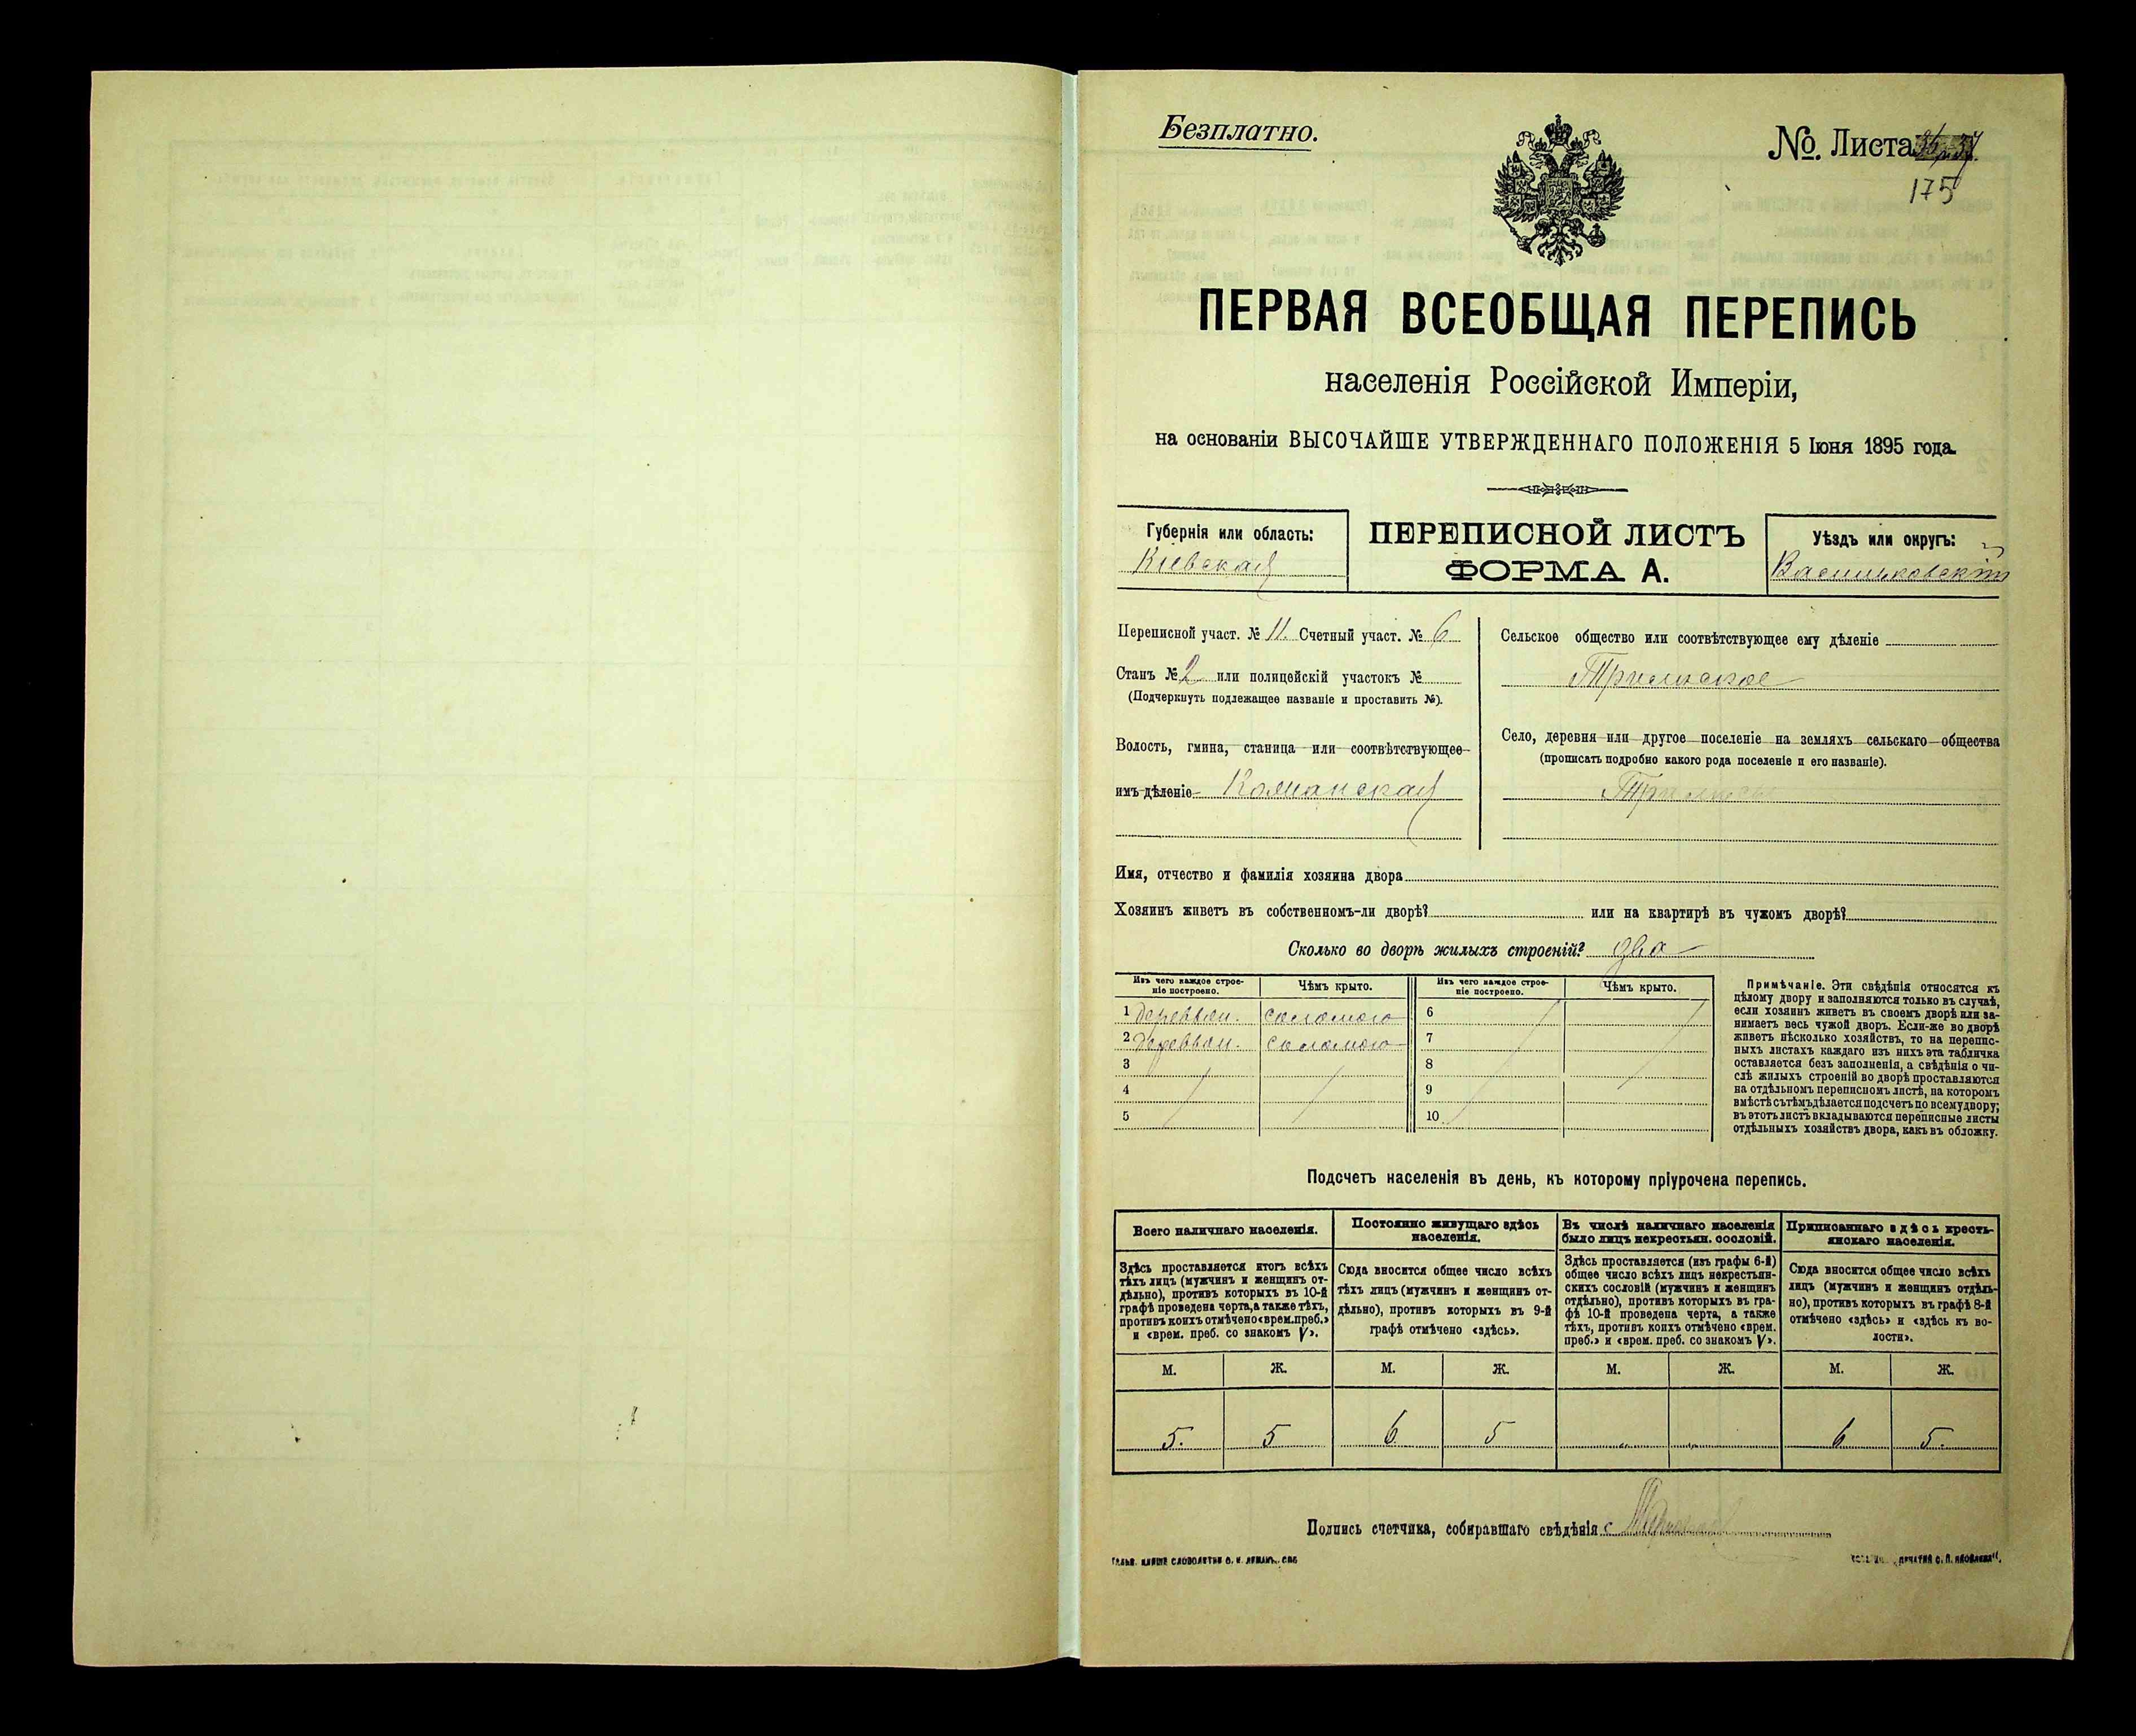 Безплатно.
№. Листа
175
ПЕРВАЯ ВСЕОБЩАЯ ПЕРЕПИСЬ
населенія Россійской Имперіи,
на основаніи ВЫСОЧАЙШЕ УТВЕРЖДЕННАГО ПОЛОЖЕНІЯ 5 Іюня 1895 года.
Губернія или область:
Кіевская
ПЕРЕПИСНОЙ ЛИСТЪ
ФОРМА А.
Уѣздъ или округъ:
Васильковскій
Переписной участ. № 11. Счетный участ. № 6
Станъ № 2 или полицейскій участокъ №
(Подчеркнуть подлежащее названіе и проставить №).
Волость, гмина, станица или соотвѣтствующее
имъ дѣленіе Кожанская
Сельское общество или соотвѣтствующее ему дѣленіе
Трилиское
Село, деревня или другое поселеніе на земляхъ сельскаго общества
(прописать подробно какого рода поселеніе и его названіе).
Имя, отчество и фамилія хозяина двора
Хозяинъ живетъ въ собственномъ-ли дворѣ? или на квартирѣ въ чужомъ дворѣ?
Сколько во дворѣ жилыхъ строеній? два
Изъ чего каждое строеніе построено. Чѣмъ крыто. Изъ чего каждое строеніе построено. Чѣмъ крыто.
1 деревян. соломою 6
2 деревян. соломою 7
3 8
4 9
5 10
Примѣчаніе. Эти свѣдѣнія относятся къ
цѣлому двору и заполняются только въ случаѣ,
если хозяинъ живетъ въ своемъ дворѣ или за-
нимаетъ весь чужой дворъ. Если-же во дворѣ
живетъ нѣсколько хозяйствъ, то на перепис-
ныхъ листахъ каждаго изъ нихъ эта табличка
оставляется безъ заполненія, а свѣдѣнія о чи-
слѣ жилыхъ строеній во дворѣ проставляются
на отдѣльномъ переписномъ листѣ, на которомъ
вмѣстѣ съ тѣмъ дѣлается подсчетъ по всему двору;
въ этотъ листъ вкладываются переписные листы
отдѣльныхъ хозяйствъ двора, какъ въ обложку.
Подсчетъ населенія въ день, къ которому пріурочена перепись.
Всего наличнаго населенія.
Здѣсь проставляется итогъ всѣхъ
тѣхъ лицъ (мужчинъ и женщинъ от-
дѣльно), противъ которыхъ въ 10-й
графѣ проведена черта, а также тѣхъ,
противъ коихъ отмѣчено «врем. преб.»
и «врем. преб. со знакомъ V».
Постоянно живущаго здѣсь
населенія.
Сюда вносится общее число всѣхъ
тѣхъ лицъ (мужчинъ и женщинъ от-
дѣльно), противъ которыхъ въ 9-й
графѣ отмѣчено «здѣсь».
Въ числѣ наличнаго населенія
было лицъ некрестьян. сословій.
Здѣсь проставляется (изъ графы 6-й)
общее число всѣхъ лицъ некрестьян-
скихъ сословій (мужчинъ и женщинъ
отдѣльно), противъ которыхъ въ гра-
фѣ 10-й проведена черта, а также
тѣхъ, противъ коихъ отмѣчено «врем.
преб.» и «врем. преб. со знакомъ V».
Приписаннаго здѣсь кресть-
янскаго населенія.
Сюда вносится общее число всѣхъ
лицъ (мужчинъ и женщинъ отдѣль-
но), противъ которыхъ въ графѣ 8-й
отмѣчено «здѣсь» и «здѣсь къ во-
лости».
М. Ж. М. Ж. М. Ж. М. Ж.
5. 5 6 5 6 5.
Подпись счетчика, собиравшаго свѣдѣнія